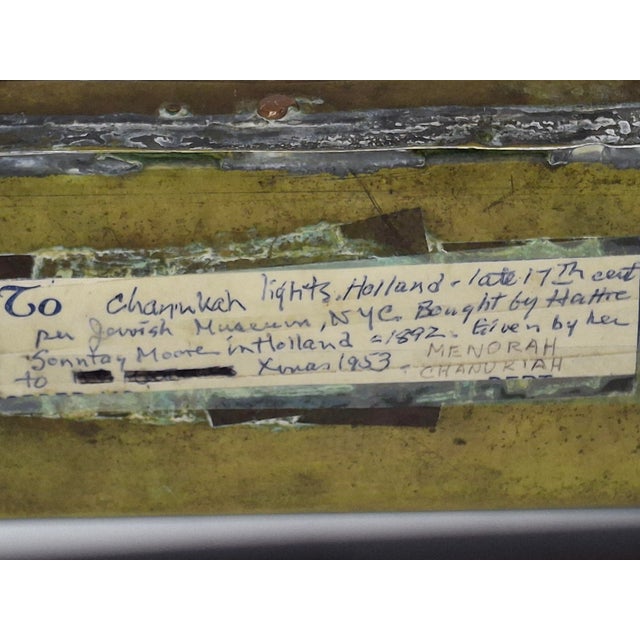 To Chanukah lights. Holland - late 17th cent
per Jewish Museum, NYC. Bought by Hattie
Sonntag Moore in Holland = 1892. Given by her
to Xmas 1953.
MENORAH
CHANUKIAH